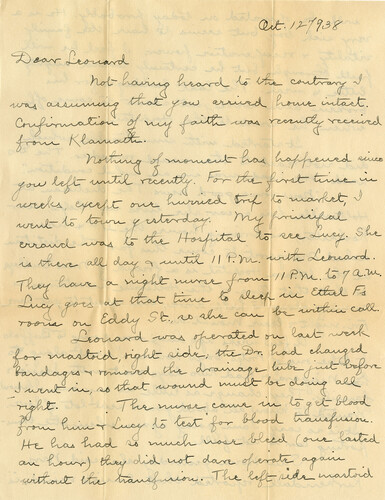 Oct. 12/938
Dear Leonard
Not having heard to the contrary I
was assuming that you arrived home intact.
Confirmation of my faith was recently received
from Klamath.
Nothing of moment has happened since
you left until recently. For the first time in
weeks, except one hurried trip to market, I
went to town yesterday. My principal
errand was to the Hospital to see Lucy. She
is there all day & until 11 P.M. with Leonard.
They have a night nurse from 11 P.M. to 7 A.M.
Lucy goes at that time to sleep in Ethel F's
room on Eddy St., so she can be within call.
Leonard was operated on last week
for mastoid, right side, the Dr. had changed
bandages & removed the drainage tube just before
I went in, so that wound must be doing all
right. The nurse came in to get blood
from him & Lucy to test for blood transfusion.
He has had so much nose bleed (one lasted
an hour) they did not dare operate again
without the transfusion. The left side mastoid